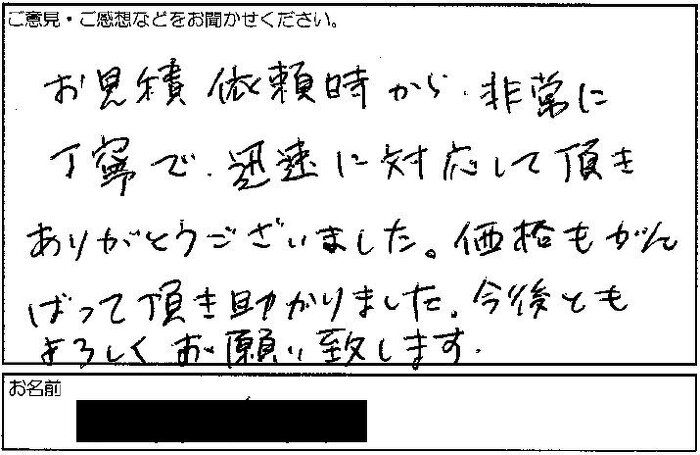 ご意見・ご感想などをお聞かせください。
お見積依頼時から、非常に
丁寧で、迅速に対応して頂き
ありがとうございました。価格もがん
ばって頂き助かりました。今後とも
よろしくお願い致します。
お名前